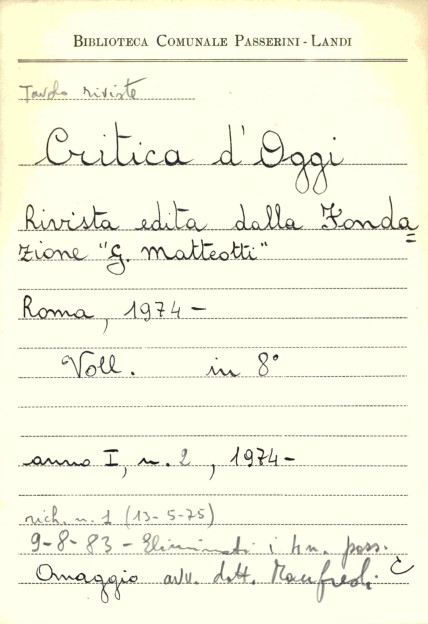 BIBLIOTECA COMUNALE PASSERINI - LANDI
Tavolo riviste
Critica d'Oggi
Rivista edita dalla Fonda=
zione "G. Matteotti"
Roma, 1974 -
Voll. in 8°
anno I, n. 2, 1974 -
rich. n. 1 (13-5-75)
9-8-83 - Eliminati i n. poss.
Omaggio avv. dott. Manfredi